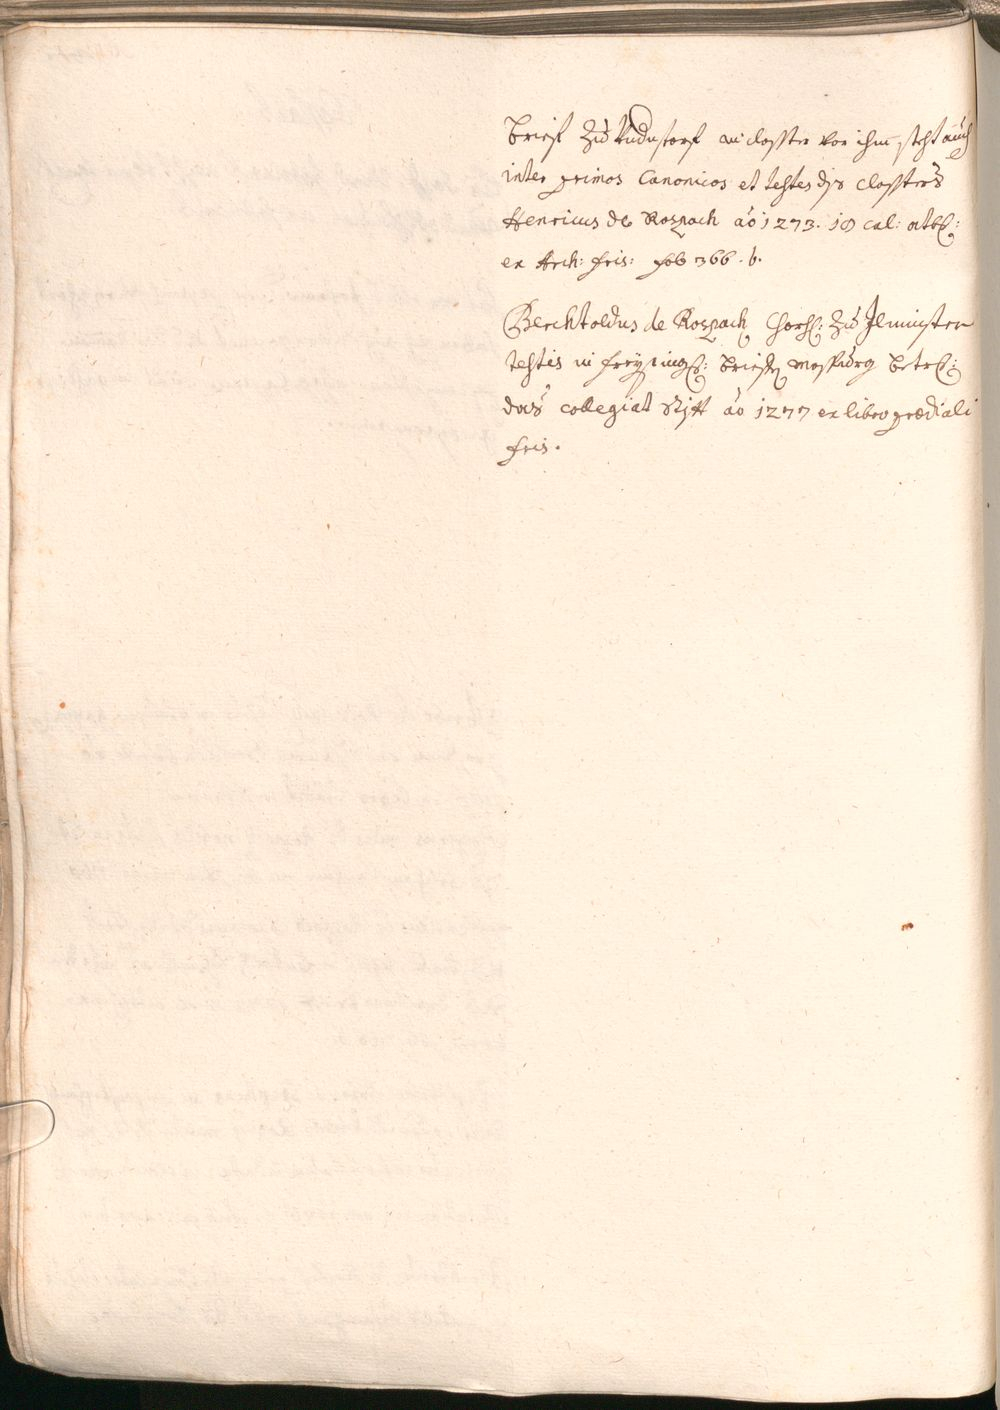 brief zu Vndnstorf im closter vor ihm steht auch
inter primos Canonicos et testes djs closters
Henricus de Rospach ao 1273. 18 cal: octob:
ex Arch: fris: fol 366. b.
Berchtoldus de Rospach Chorh: zu Ilminster
testis in freysing: briefen mospurg betrf:
das collegiat Stjft ao 1277 ex libro prædiali
fris.